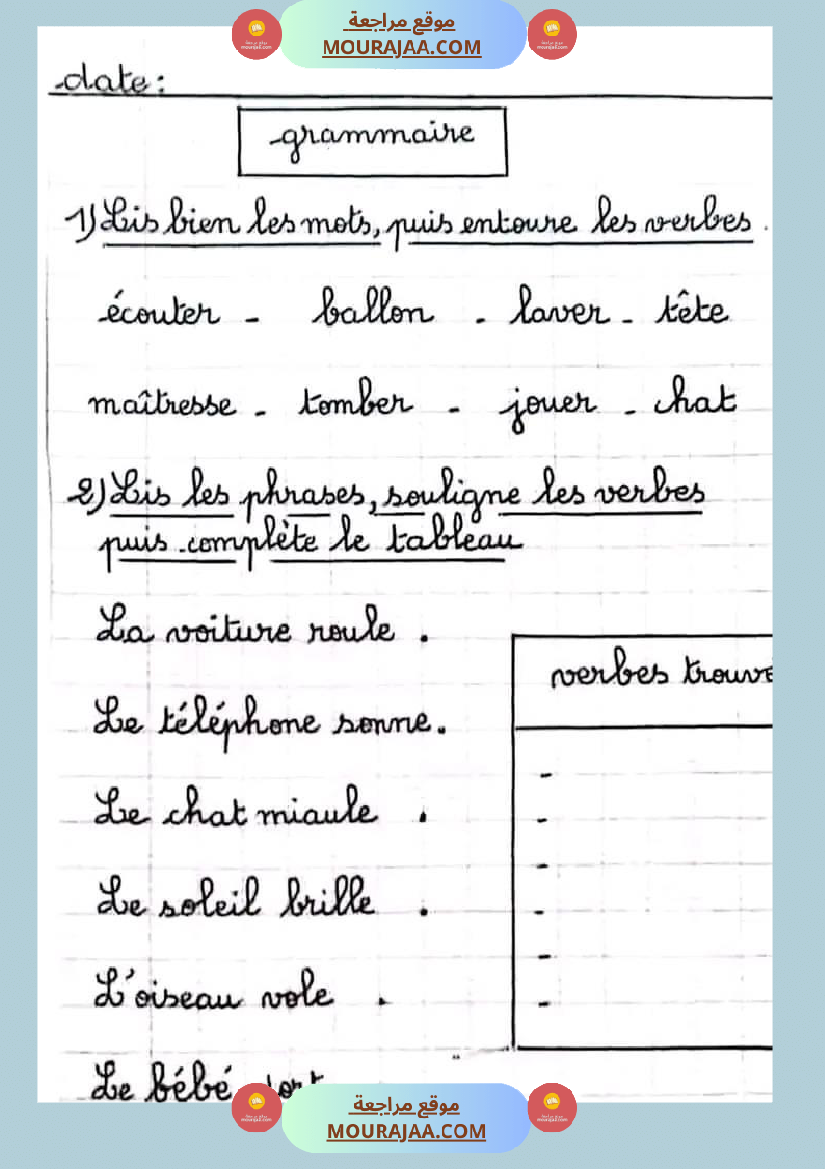 موقع مراجعة
MOURAJAA.COM
date:
grammaire
1) Lis bien les mots, puis entoure les verbes.
écouter - ballon - laver - tête
maîtresse - tomber - jouer - chat
2) Lis les phrases, souligne les verbes
puis complète le tableau
La voiture roule.
verbes trouvé
Le téléphone sonne.
-
Le chat miaule.
-
-
Le soleil brille.
-
L'oiseau vole.
-
-
Le bébé dort
موقع مراجعة
MOURAJAA.COM